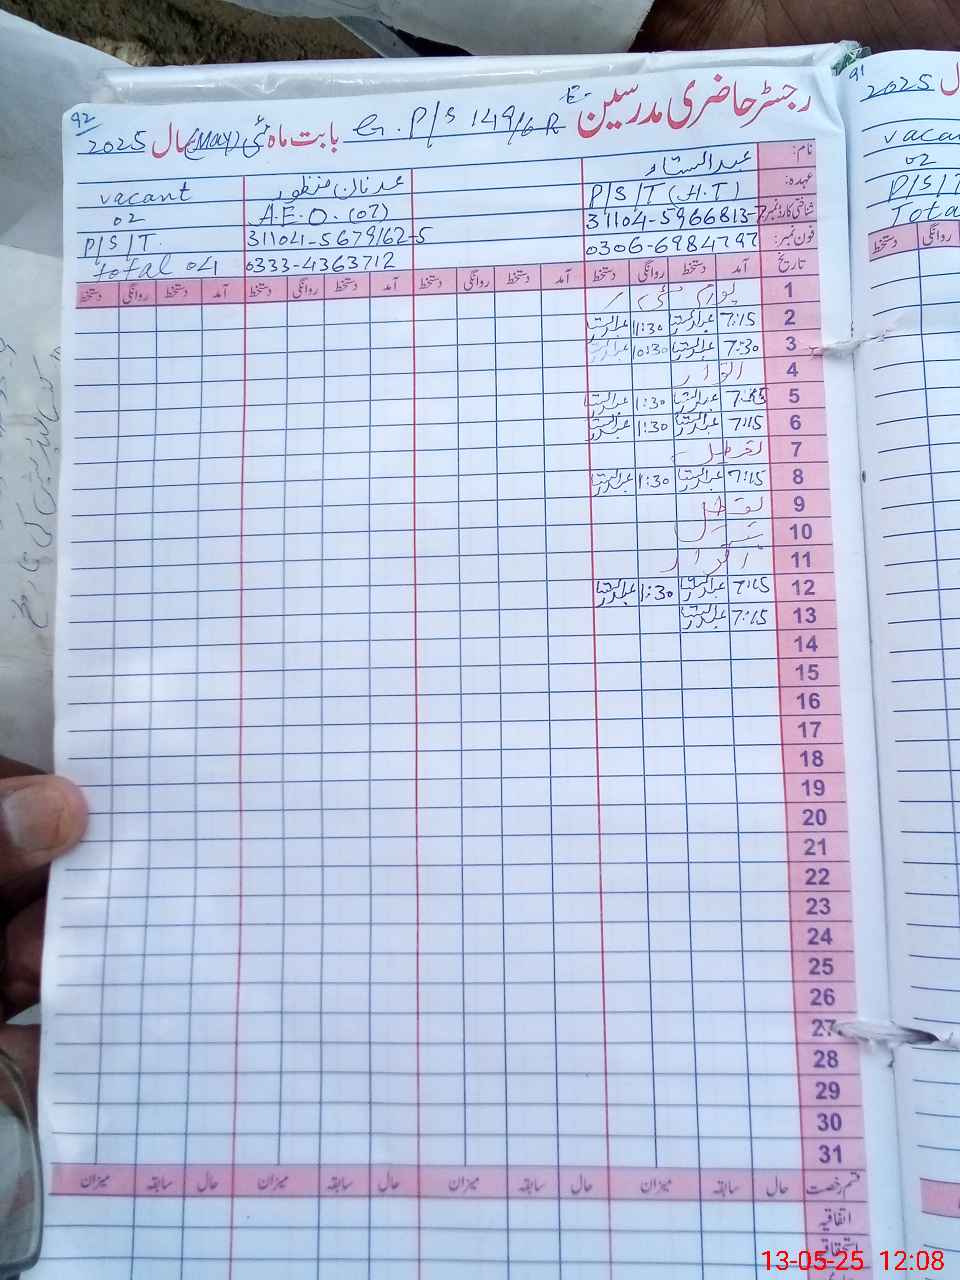 92
رجسٹر حاضری مدرسین G. P/S 149/6R E- بابت ماہ مئی (May) سال 2025
نام: عبدالستار عدنان منظور vacant
عہدہ: P/S/T (H.T) A.E.O. (07) 02
شناختی کارڈ نمبر 31104-5966813-7 31104-5679162-5 P/S/T.
فون نمبر: 0306-6984797 0333-4363712 Total 04
تاریخ آمد دستخط روانگی دستخط آمد دستخط روانگی دستخط آمد دستخط روانگی دستخط آمد دستخط روانگی دستخط
1 یوم مئی
2 7:15 عبدالستار 11:30 عبدالستار
3 7:30 عبدالستار 10:30 عبدالستار
4 اتوار
5 عبدالستار 1:30 عبدالستار
6 7:15 عبدالستار 1:30 عبدالستار
7 تعطیل
8 7:15 عبدالستار 1:30 عبدالستار
9 تعطیل
10
11 اتوار
12 7:15 عبدالستار 1:30 عبدالستار
13 7:15 عبدالستار
14
15
16
17
18
19
20
21
22
23
24
25
26
27
28
29
30
31
قسم رخصت حال سابقہ میزان حال سابقہ میزان حال سابقہ میزان حال سابقہ میزان
اتفاقیہ
استحقاقیہ
91
2025
02
P/S/T
روانگی دستخط
13-05-25 12:08